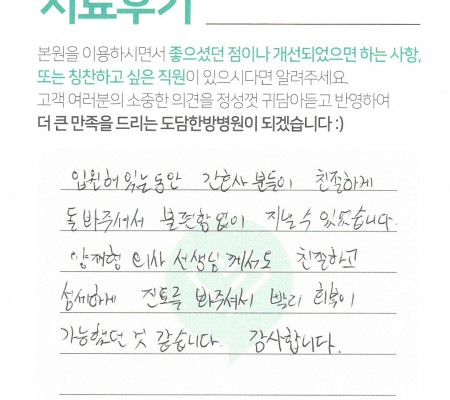 치료후기
본원을 이용하시면서 좋으셨던 점이나 개선되었으면 하는 사항,
또는 칭찬하고 싶은 직원이 있으시다면 알려주세요.
고객 여러분의 소중한 의견을 정성껏 귀담아듣고 반영하여
더 큰 만족을 드리는 도담한방병원이 되겠습니다 :)
입원해 있는동안 간호사 분들이 친절하게
돌봐주셔서 불편함없이 지낼 수 있었습니다.
양재형 의사 선생님께서도 친절하고
섬세하게 진료를 봐주셔서 빨리 회복이
가능했던 것 같습니다. 감사합니다.